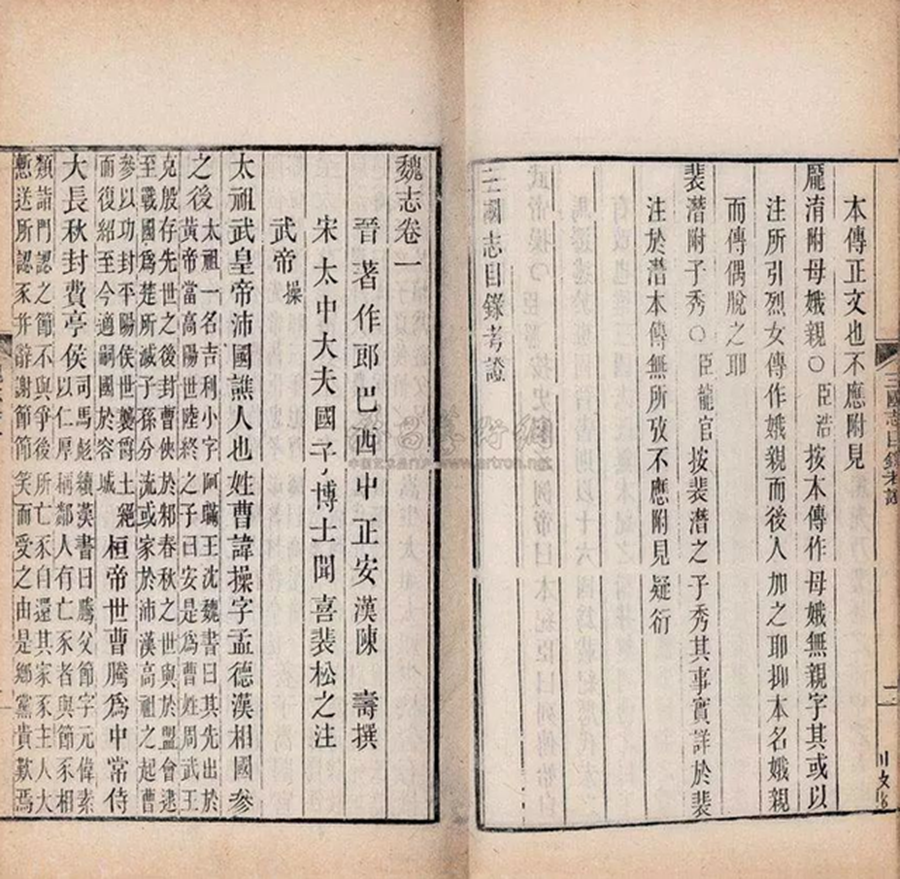 本傳正文也不應附見
龐淯附母娥親〇臣浩按本傳作母娥無親字其或以
注所引烈女傳作娥親而後人加之耶抑本名娥親
而傳偶脫之耶
裴潛附子秀〇臣龍官按裴潛之子秀其事實詳於裴
注於潛本傳無所攷不應附見疑衍
三國志目錄考證
三國志目錄考證
二
魏志卷一
晉著作郎巴西中正安漢陳壽撰
宋太中大夫國子博士聞喜裴松之注
武帝操
太祖武皇帝沛國譙人也姓曹諱操字孟德漢相國參
之後太祖一名吉利小字阿瞞王沈魏書曰其先出於
黃帝當高陽世陸終之子曰安是為曹姓周武王
克殷存先世之後封曹俠於邾春秋之世與於盟會逮
至戰國為楚所滅子孫分流或家於沛漢高祖之起曹
參以功封平陽侯世襲爵土絕
而復紹至今適嗣國於容城
桓帝世曹騰為中常侍
大長秋封費亭侯司馬彪續漢書曰騰父節字元偉素
以仁厚稱鄰人有亡豕者與節豕相
類詣門認之節不與爭後所亡豕自還其家豕主人大
慙送所認豕并辭謝節節笑而受之由是鄉黨貴歎焉